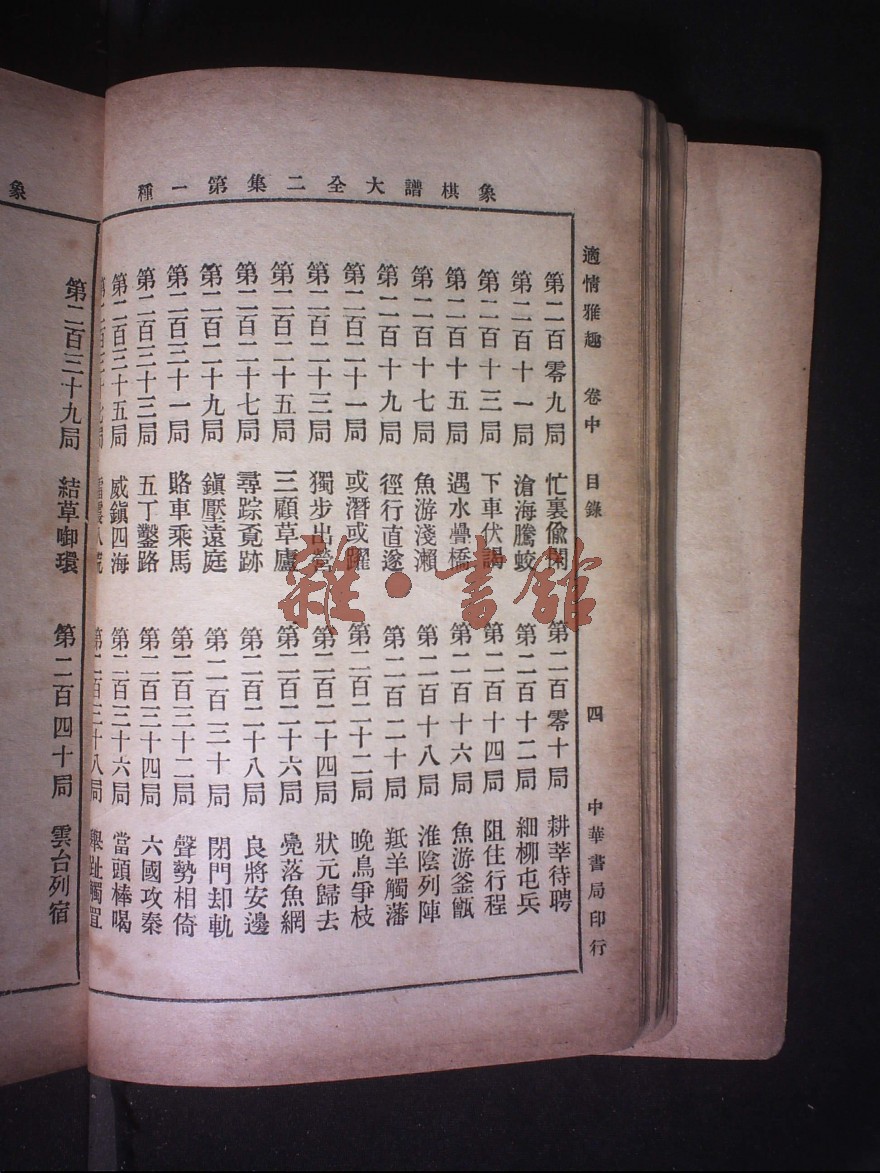 象棋譜大全二集第一種
適情雅趣 卷中 目錄 四 中華書局印行
第二百零九局 忙裏偸閑 第二百零十局 耕莘待聘
第二百十一局 滄海騰蛟 第二百十二局 細柳屯兵
第二百十三局 下車伏謁 第二百十四局 阻住行程
第二百十五局 遇水疊橋 第二百十六局 魚游釜甑
第二百十七局 魚游淺瀨 第二百十八局 淮陰列陣
第二百十九局 徑行直遂 第二百二十局 羝羊觸藩
第二百二十一局 或潛或躍 第二百二十二局 晚鳥爭枝
第二百二十三局 獨步出營 第二百二十四局 狀元歸去
第二百二十五局 三顧草廬 第二百二十六局 鳧落魚網
第二百二十七局 尋踪覓跡 第二百二十八局 良將安邊
第二百二十九局 鎭壓遠庭 第二百三十局 閉門却軌
第二百三十一局 賂車乘馬 第二百三十二局 聲勢相倚
第二百三十三局 五丁鑿路 第二百三十四局 六國攻秦
第二百三十五局 威鎭四海 第二百三十六局 當頭棒喝
第二百三十七局 第二百三十八局 舉趾觸罝
象
第二百三十九局 結草啣環 第二百四十局 雲台列宿
雜·書館